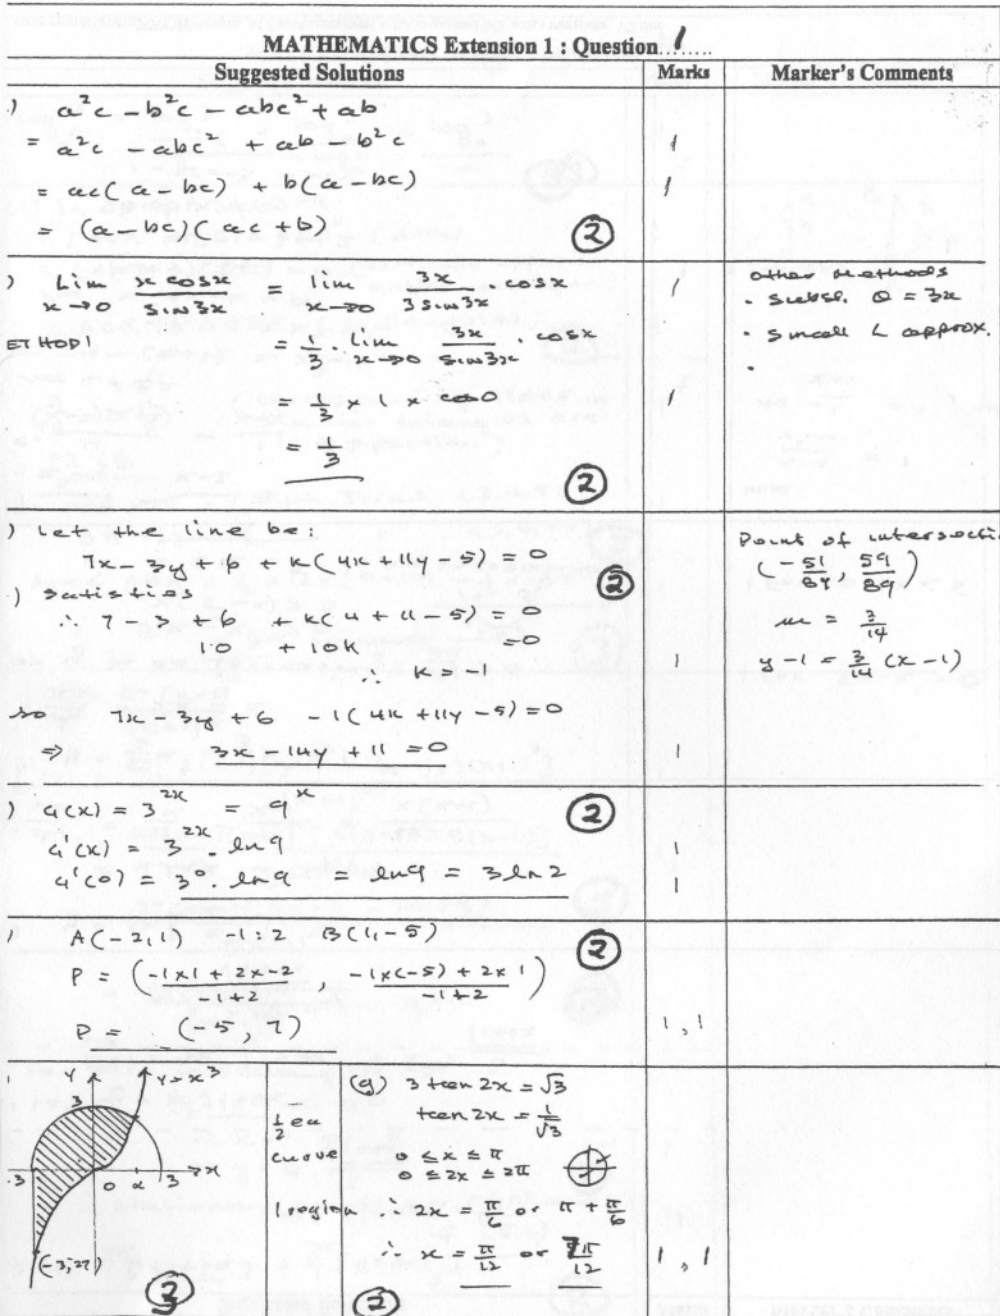 MATHEMATICS Extension 1 : Question 1
Suggested Solutions Marks Marker's Comments
) a²c - b²c - abc² + ab
= a²c - abc² + ab - b²c 1
= ac(a - bc) + b(a - bc) 1
= (a - bc)(ac + b) ②
) Lim x→0 x cosx / sin 3x = lim x→0 3x / 3 sin 3x . cosx 1
other methods
. subst. θ = 3x
. small ∠ approx.
ETHOD 1 = 1/3 . lim x→0 3x / sin 3x . cosx
= 1/3 × 1 × cos 0 1
= 1/3
②
) Let the line be:
7x - 3y + 6 + k(4x + 11y - 5) = 0 ②
) satisfies
∴ 7 - 3 + 6 + k(4 + 11 - 5) = 0
10 + 10k = 0
∴ k = -1 1
so 7x - 3y + 6 - 1(4x + 11y - 5) = 0
⇒ 3x - 14y + 11 = 0 1
Point of intersecti
(-51/89, 59/89)
m = 3/14
y - 1 = 3/14 (x - 1)
) G(x) = 3^2x = 9^x ②
G'(x) = 3^2x . ln 9 1
G'(0) = 3⁰ . ln 9 = ln 9 = 3 ln 2 1
) A(-2, 1) -1 : 2 B(1, -5) ②
P = (-1×1 + 2×-2 / -1+2 , -1×(-5) + 2×1 / -1+2)
P = (-5, 7) 1, 1
y y = x³
3
-3 0 α 3 x
(-3, 27)
③
1/2 ea
curve
1 region
(g) 3 tan 2x = √3
tan 2x = 1/√3
0 ≤ x ≤ π
0 ≤ 2x ≤ 2π
∴ 2x = π/6 or π + π/6
∴ x = π/12 or 7π/12 1, 1
②